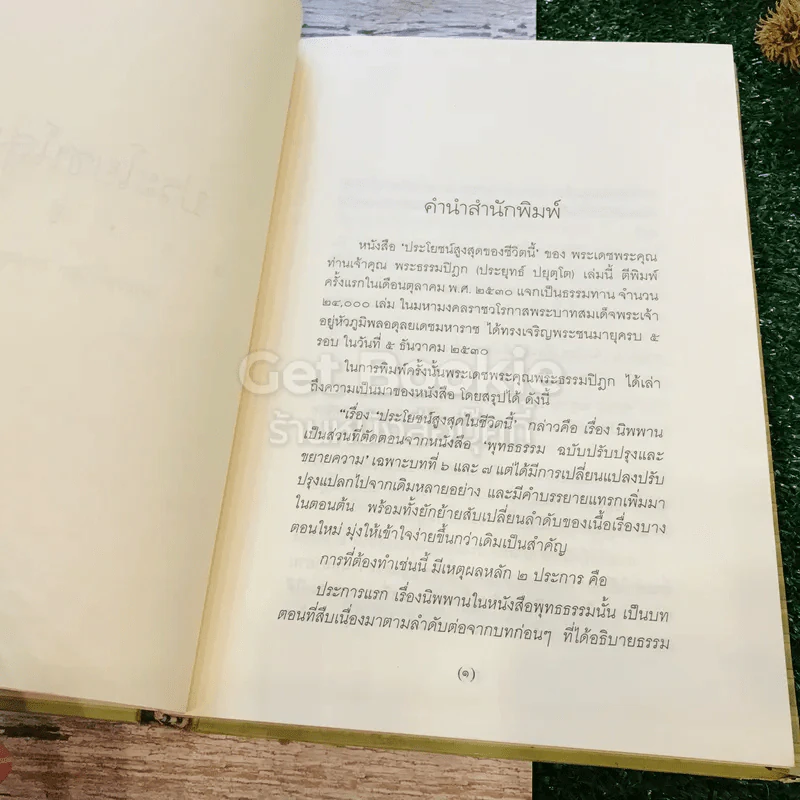 คำนำสำนักพิมพ์
หนังสือ 'ประโยชน์สูงสุดของชีวิตนี้' ของ พระเดชพระคุณ
ท่านเจ้าคุณ พระธรรมปิฎก (ประยุทธ์ ปยุตฺโต) เล่มนี้ ตีพิมพ์
ครั้งแรกในเดือนตุลาคม พ.ศ. ๒๕๓๐ แจกเป็นธรรมทาน จำนวน
๒๔,๐๐๐ เล่ม ในมหามงคลราชวโรกาสพระบาทสมเด็จพระเจ้า
อยู่หัวภูมิพลอดุลยเดชมหาราช ได้ทรงเจริญพระชนมายุครบ ๕
รอบ ในวันที่ ๕ ธันวาคม ๒๕๓๐
ในการพิมพ์ครั้งนั้นพระเดชพระคุณพระธรรมปิฎก ได้เล่า
ถึงความเป็นมาของหนังสือ โดยสรุปได้ ดังนี้
"เรื่อง 'ประโยชน์สูงสุดในชีวิตนี้' กล่าวคือ เรื่อง นิพพาน
เป็นส่วนที่ตัดตอนจากหนังสือ 'พุทธธรรม ฉบับปรับปรุงและ
ขยายความ' เฉพาะบทที่ ๖ และ ๗ แต่ได้มีการเปลี่ยนแปลงปรับ
ปรุงแปลกไปจากเดิมหลายอย่าง และมีคำบรรยายแทรกเพิ่มมา
ในตอนต้น พร้อมทั้งยักย้ายสับเปลี่ยนลำดับของเนื้อเรื่องบาง
ตอนใหม่ มุ่งให้เข้าใจง่ายขึ้นกว่าเดิมเป็นสำคัญ
การที่ต้องทำเช่นนี้ มีเหตุผลหลัก ๒ ประการ คือ
ประการแรก เรื่องนิพพานในหนังสือพุทธธรรมนั้น เป็นบท
ตอนที่สืบเนื่องมาตามลำดับต่อจากบทก่อนๆ ที่ได้อธิบายธรรม
(๑)
Get Bookie
ร้านหนังสือบุ๊คกี้